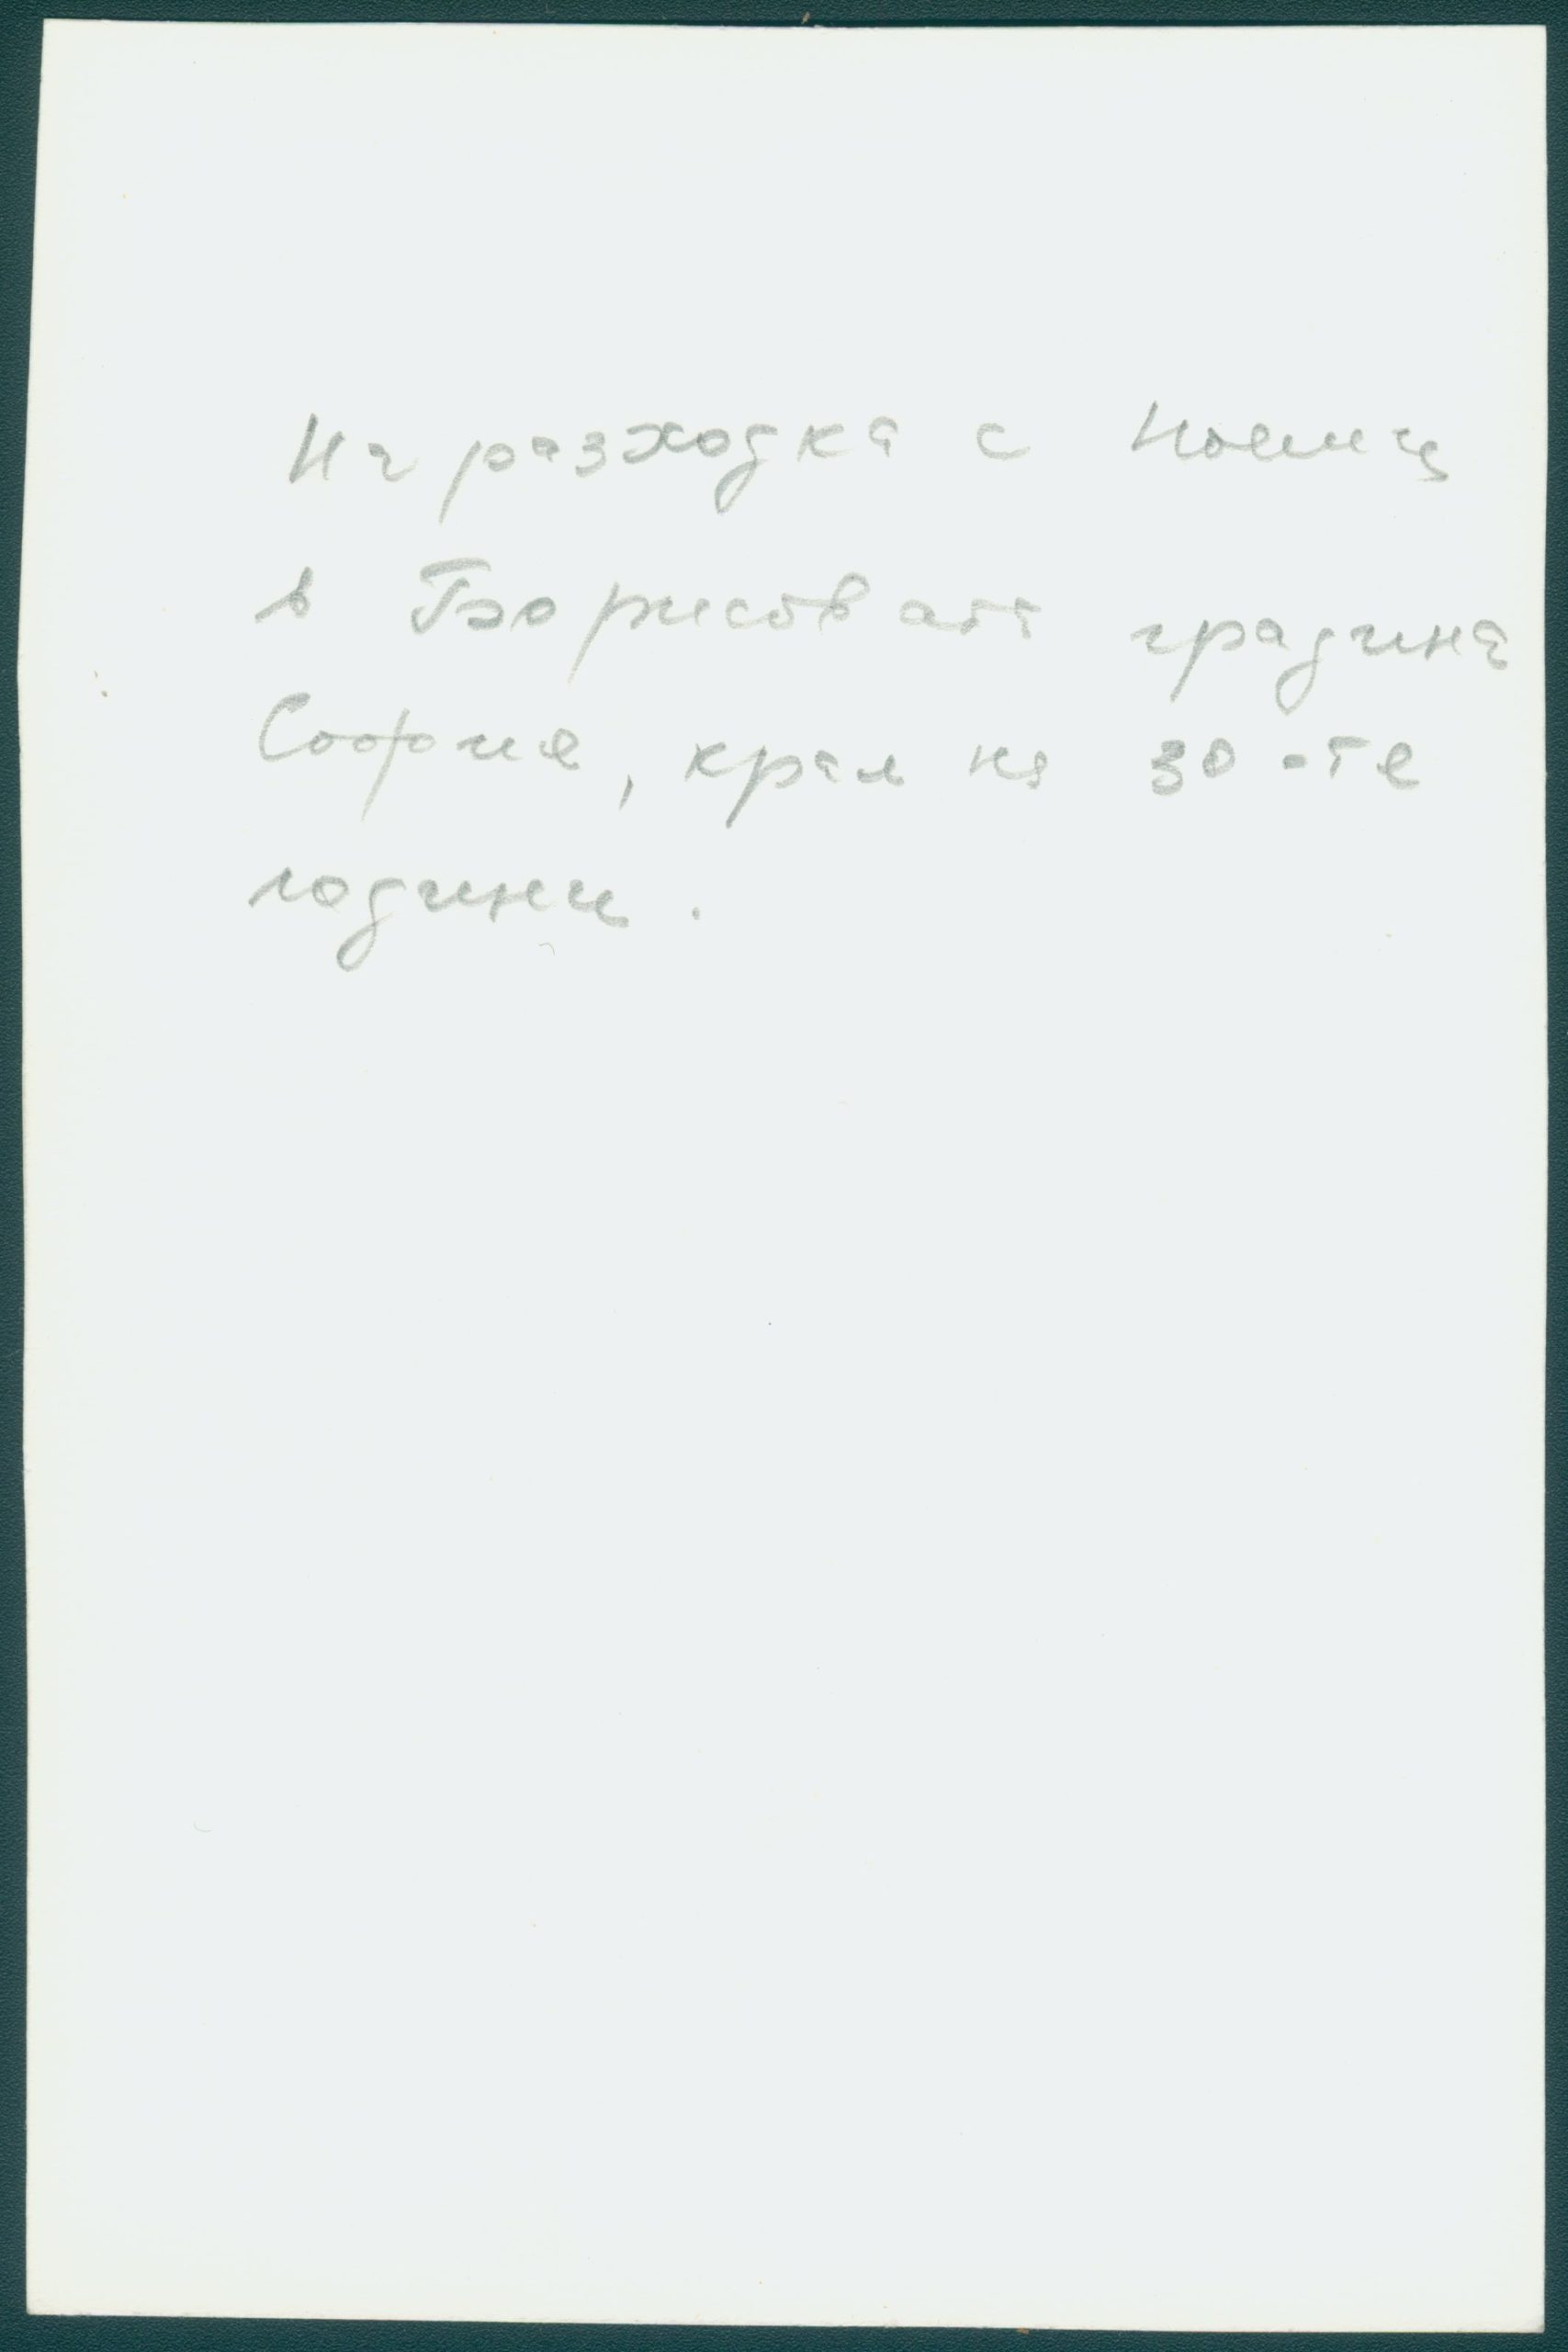 На разходка с
в Борисовата градина
София, края на 30-те
години.